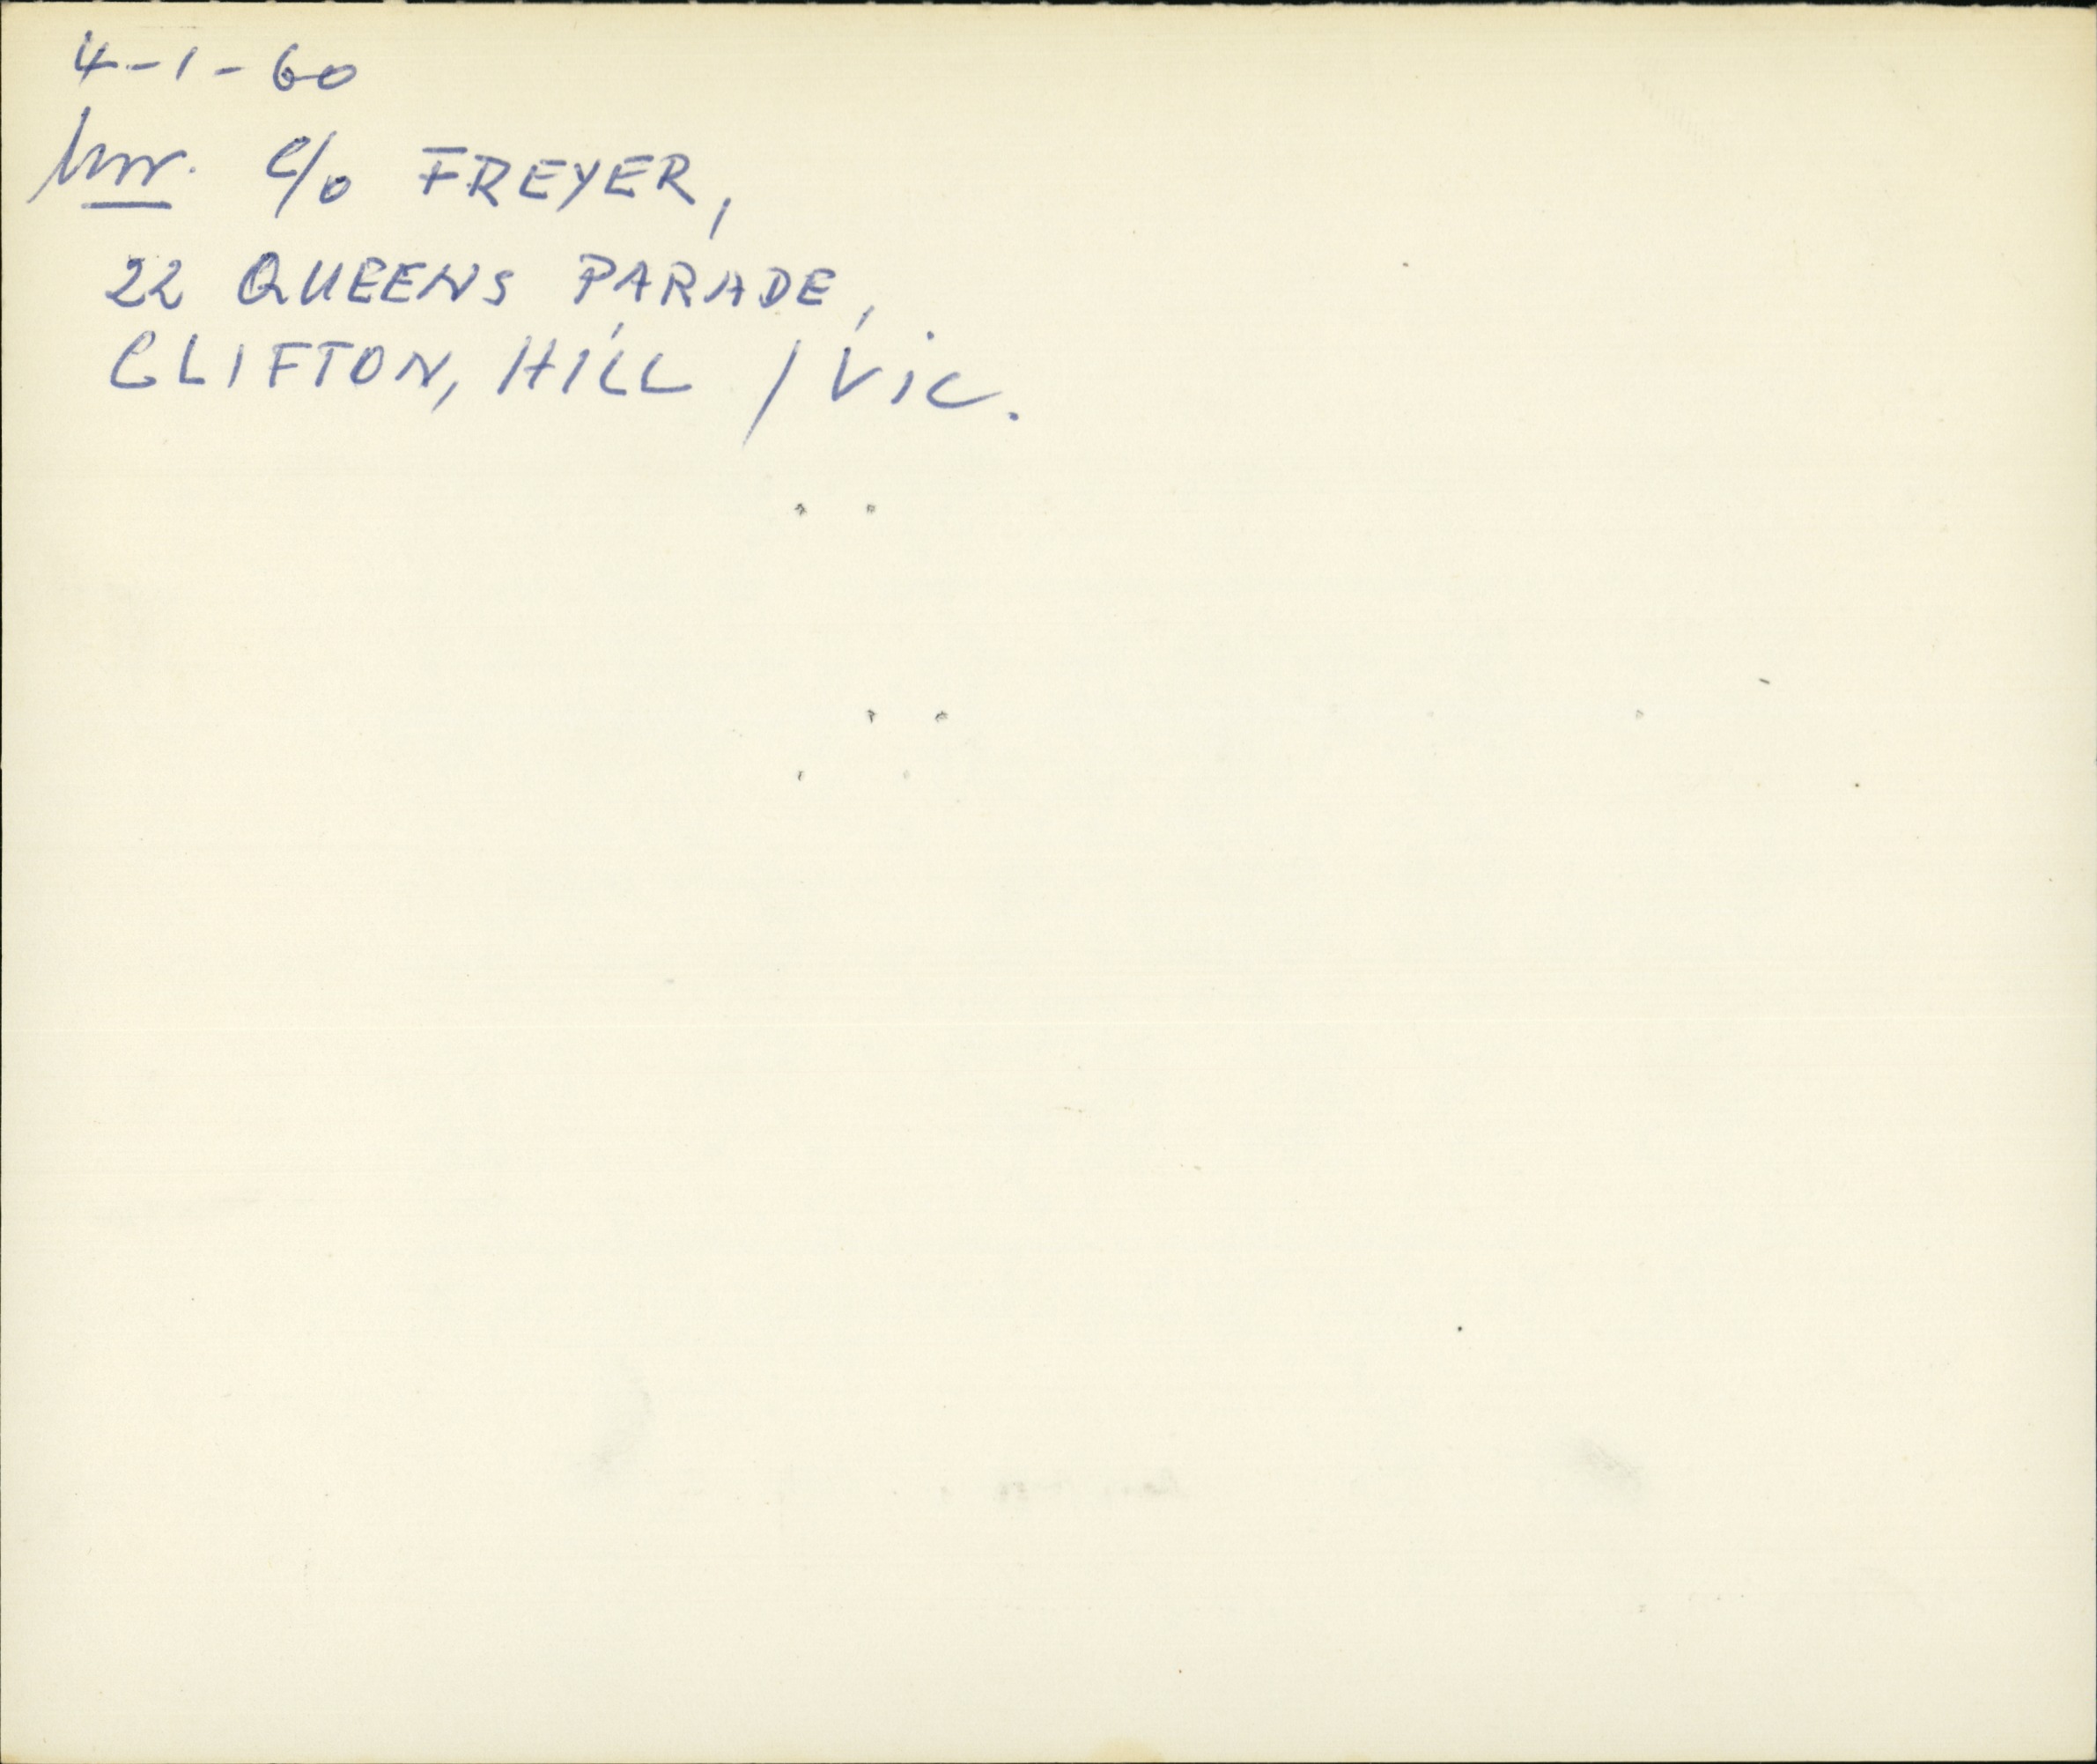 4-1-60
c/o FREYER,
22 QUEENS PARADE,
CLIFTON, HILL / Vic.